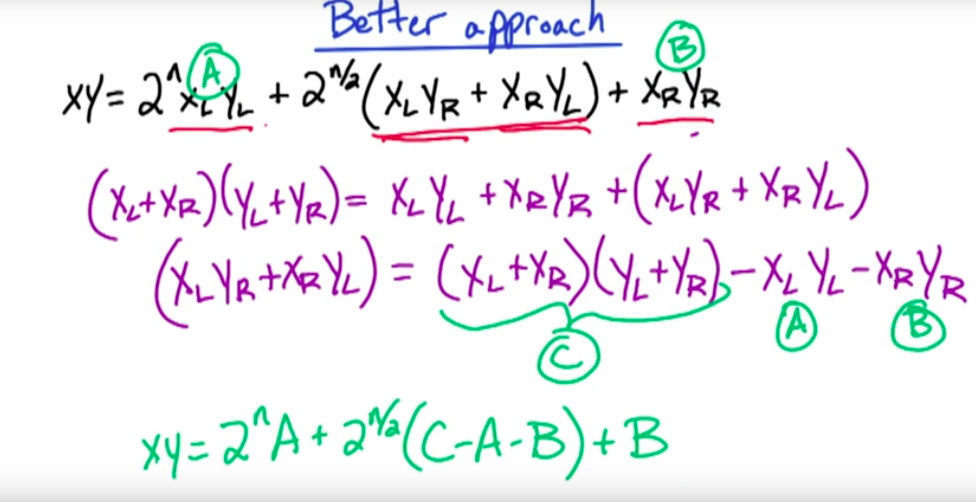 Better approach
A B
xy = 2^n x_L y_L + 2^{n/2} (x_L y_R + x_R y_L) + x_R y_R
(x_L + x_R)(y_L + y_R) = x_L y_L + x_R y_R + (x_L y_R + x_R y_L)
(x_L y_R + x_R y_L) = (x_L + x_R)(y_L + y_R) - x_L y_L - x_R y_R
A B
C
xy = 2^n A + 2^{n/2} (C - A - B) + B